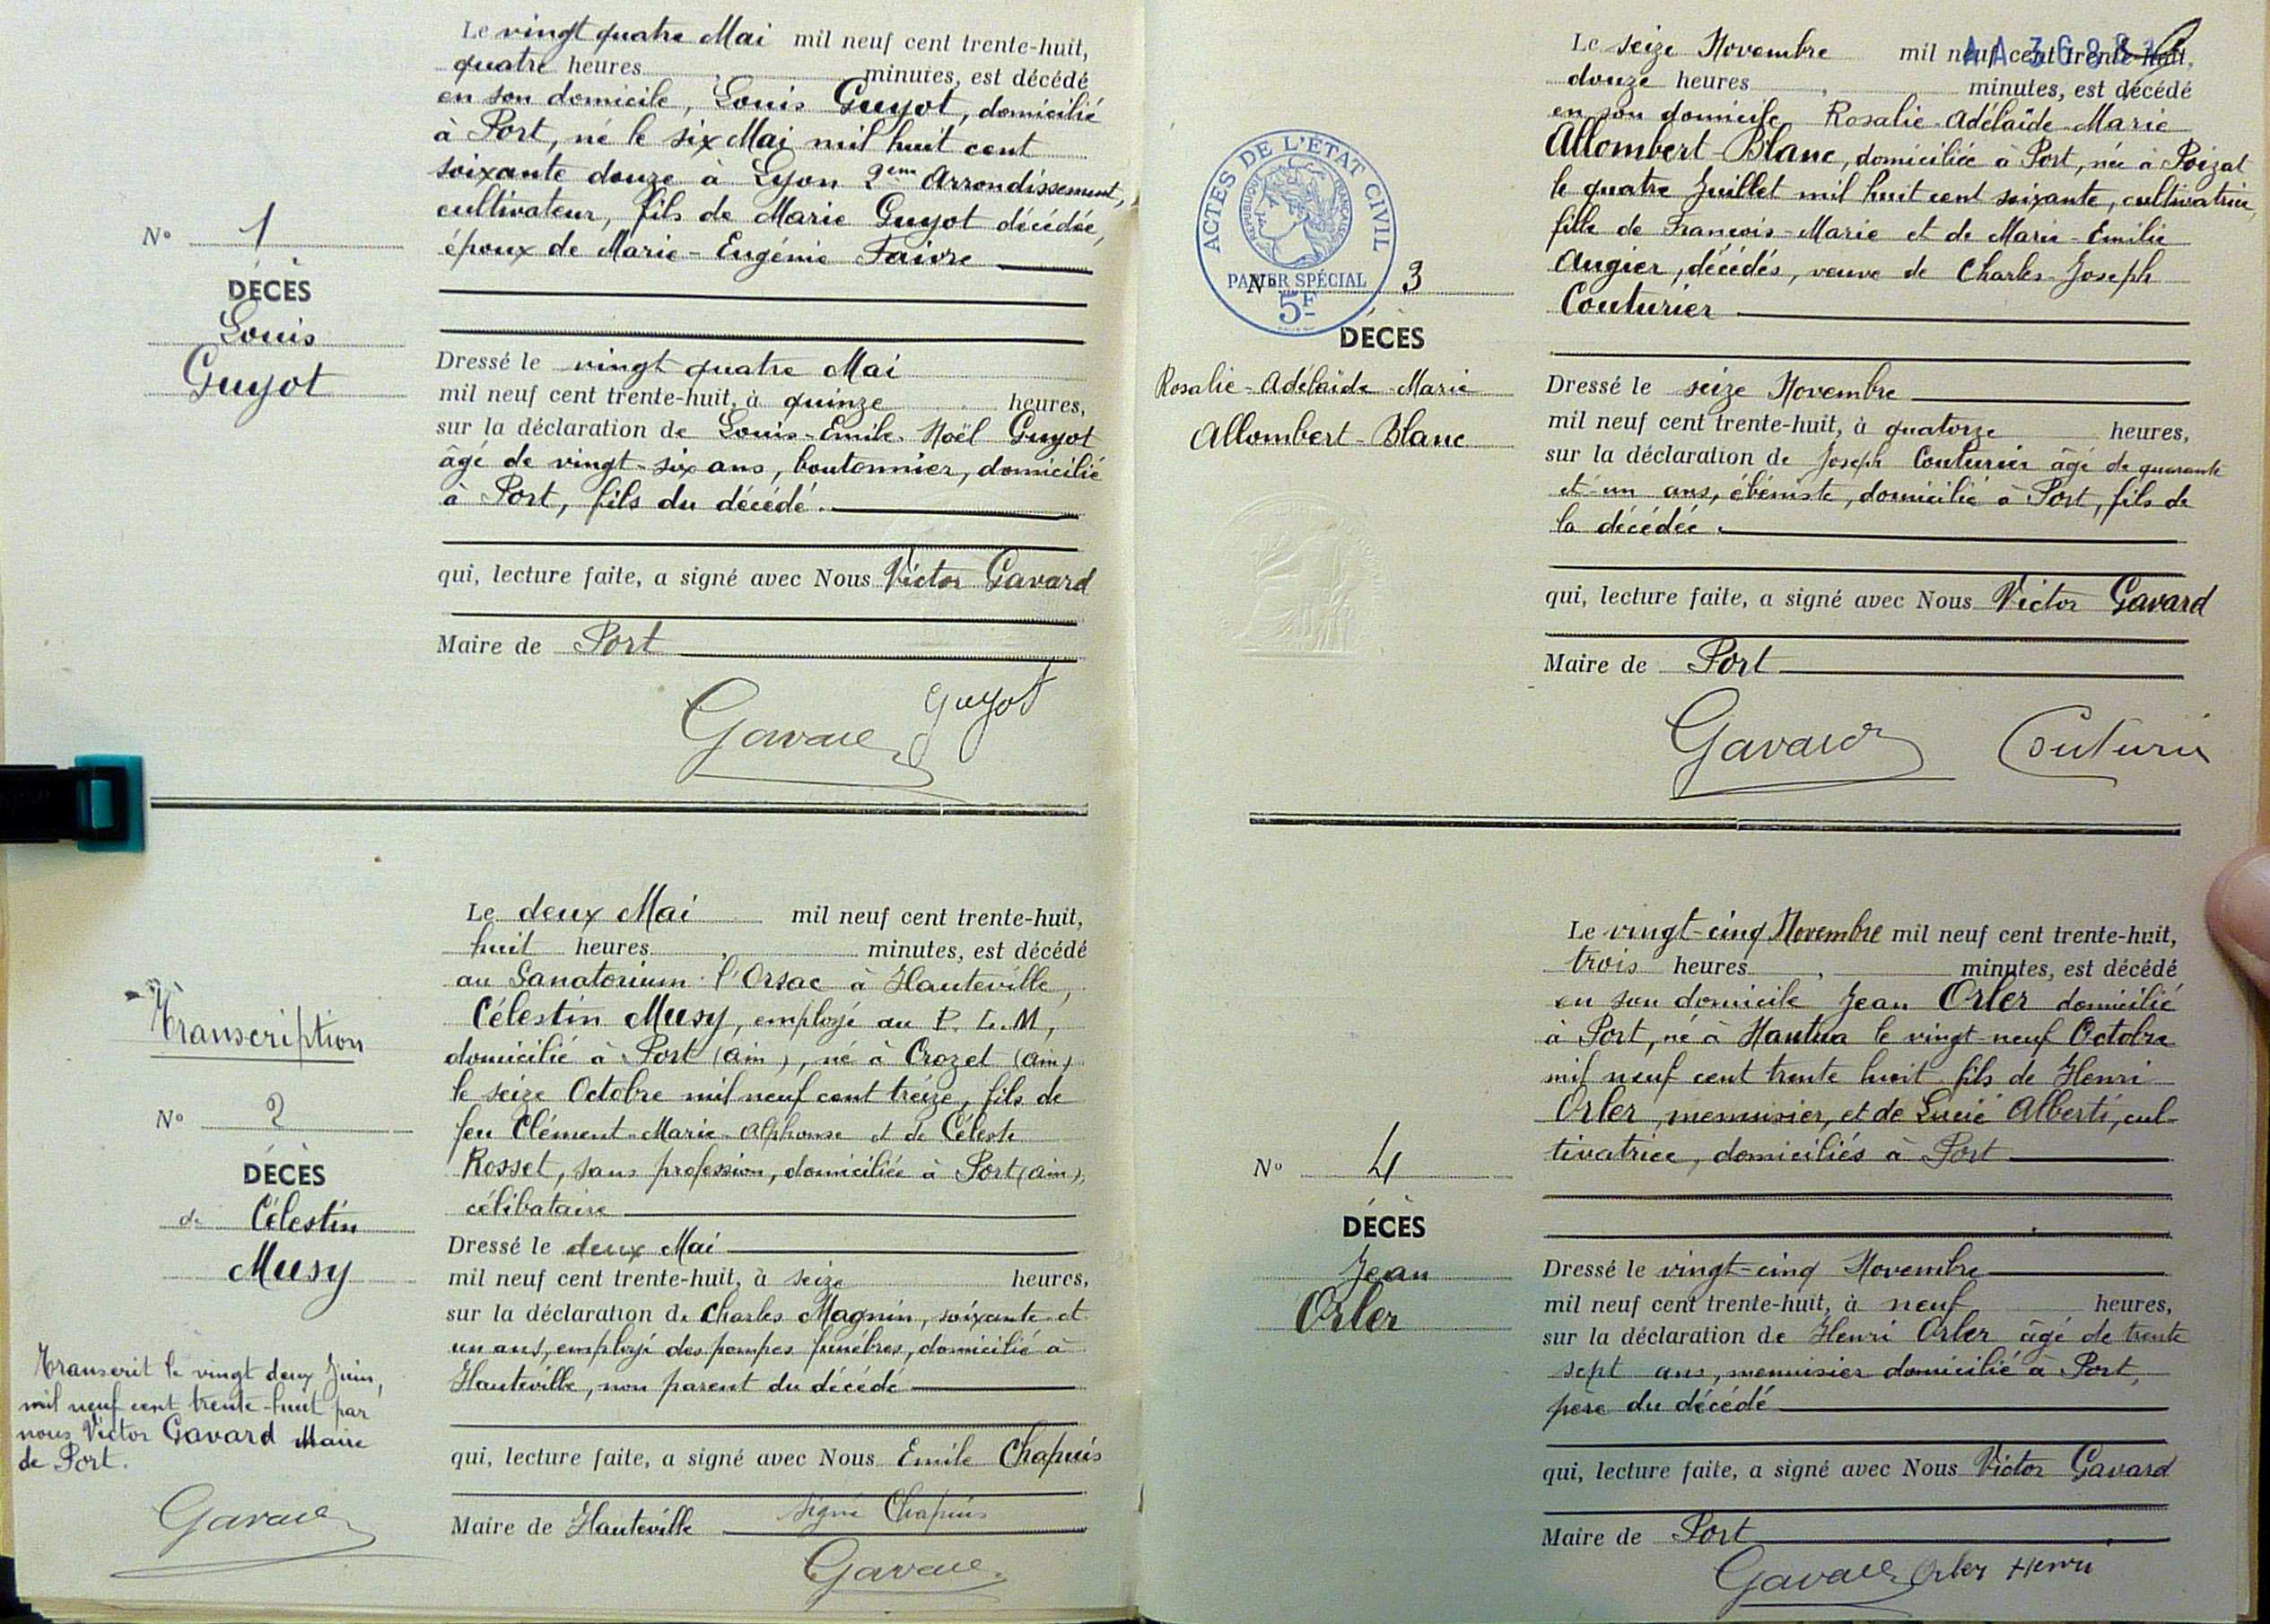 Le vingt quatre Mai mil neuf cent trente-huit,
quatre heures , minutes, est décédé
en son domicile, Louis Guyot, domicilié
à Port, né le six Mai mil huit cent
soixante douze à Lyon 2em Arrondissement,
cultivateur, fils de Marie Guyot décédée,
époux de Marie-Eugénie Faivre
N° 1
DÉCÈS
Louis
Guyot
Dressé le vingt quatre Mai
mil neuf cent trente-huit, à quinze heures,
sur la déclaration de Louis-Emile-Noël Guyot
âgé de vingt-six ans, boutonnier, domicilié
à Port, fils du décédé.
qui, lecture faite, a signé avec Nous Victor Gavard
Maire de Port
Gavard Guyot
Le deux Mai mil neuf cent trente-huit,
huit heures , minutes, est décédé
au Sanatorium l'Orsac à Hauteville,
Célestin Musy, employé au P. L. M,
domicilié à Port (ain), né à Crozet (ain)
le seize Octobre mil neuf cent treize, fils de
feu Clément-Marie-Alphonse et de Céleste
Rosset, sans profession, domiciliée à Port (ain),
célibataire
Transcription
N° 2
DÉCÈS
de Célestin
Musy
Dressé le deux Mai
mil neuf cent trente-huit, à seize heures,
sur la déclaration de Charles Magnin, soixante et
un ans, employé des pompes funèbres, domicilié à
Hauteville, non parent du décédé
qui, lecture faite, a signé avec Nous Emile Chapuis
Maire de Hauteville signé Chapuis
Gavard
Transcrit le vingt deux Juin,
mil neuf cent trente-huit par
nous Victor Gavard Maire
de Port.
Gavard
Le seize Novembre mil neuf cent trente-huit,
douze heures , minutes, est décédé
en son domicile Rosalie-Adélaïde-Marie
Allombert-Blanc, domiciliée à Port, née à Poizat
le quatre Juillet mil huit cent soixante, cultivatrice,
fille de François-Marie et de Marie-Emilie
Augier, décédés, veuve de Charles-Joseph
Couturier
ACTES DE L'ÉTAT CIVIL
RÉPUBLIQUE FRANÇAISE
PAPIER SPÉCIAL
5F
N° 3
DÉCÈS
Rosalie-Adélaïde-Marie
Allombert-Blanc
Dressé le seize Novembre
mil neuf cent trente-huit, à quatorze heures,
sur la déclaration de Joseph Couturier âgé de quarante
et un ans, ébéniste, domicilié à Port, fils de
la décédée.
qui, lecture faite, a signé avec Nous Victor Gavard
Maire de Port
Gavard Couturier
Le vingt-cinq Novembre mil neuf cent trente-huit,
trois heures , minutes, est décédé
en son domicile Jean Orler domicilié
à Port, né à Nantua le vingt-neuf Octobre
mil neuf cent trente huit fils de Henri
Orler, menuisier, et de Lucie Alberti, cul-
tivatrice, domiciliés à Port
N° 4
DÉCÈS
Jean
Orler
Dressé le vingt-cinq Novembre
mil neuf cent trente-huit, à neuf heures,
sur la déclaration de Henri Orler âgé de trente
sept ans, menuisier domicilié à Port,
père du décédé
qui, lecture faite, a signé avec Nous Victor Gavard
Maire de Port
Gavard Orler Henri